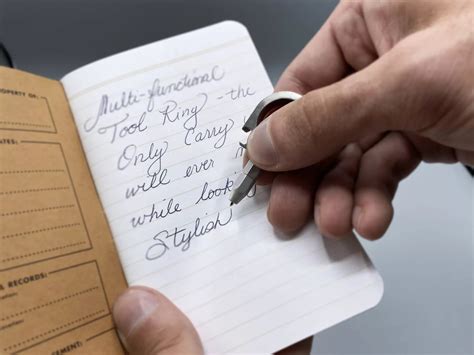 ROPERTY OF:
ATES:
& RECORDS:
CEMENT:
Multi-functional
Tool Ring - the
Only Carry
will ever
while looking
Stylish